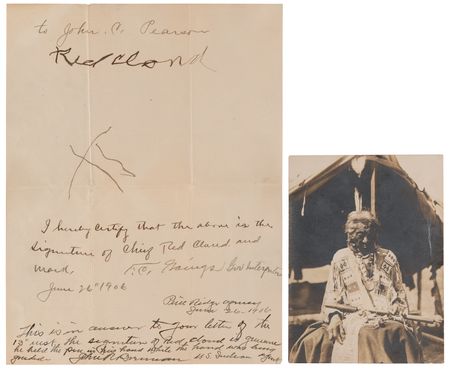 to John C. Pearson
Red Cloud
I hereby certify that the above is the
signature of Chief Red Cloud and
mark.
Gov Interpreter
June 26th 1906
Pine Ridge Agency
June 26. 1906
This is in answer to your letter of the
13" inst, the signature of Red Cloud is genuine
he held the pen in his hand while the hand was being
guided. John R Brennan U.S. Indian Agent